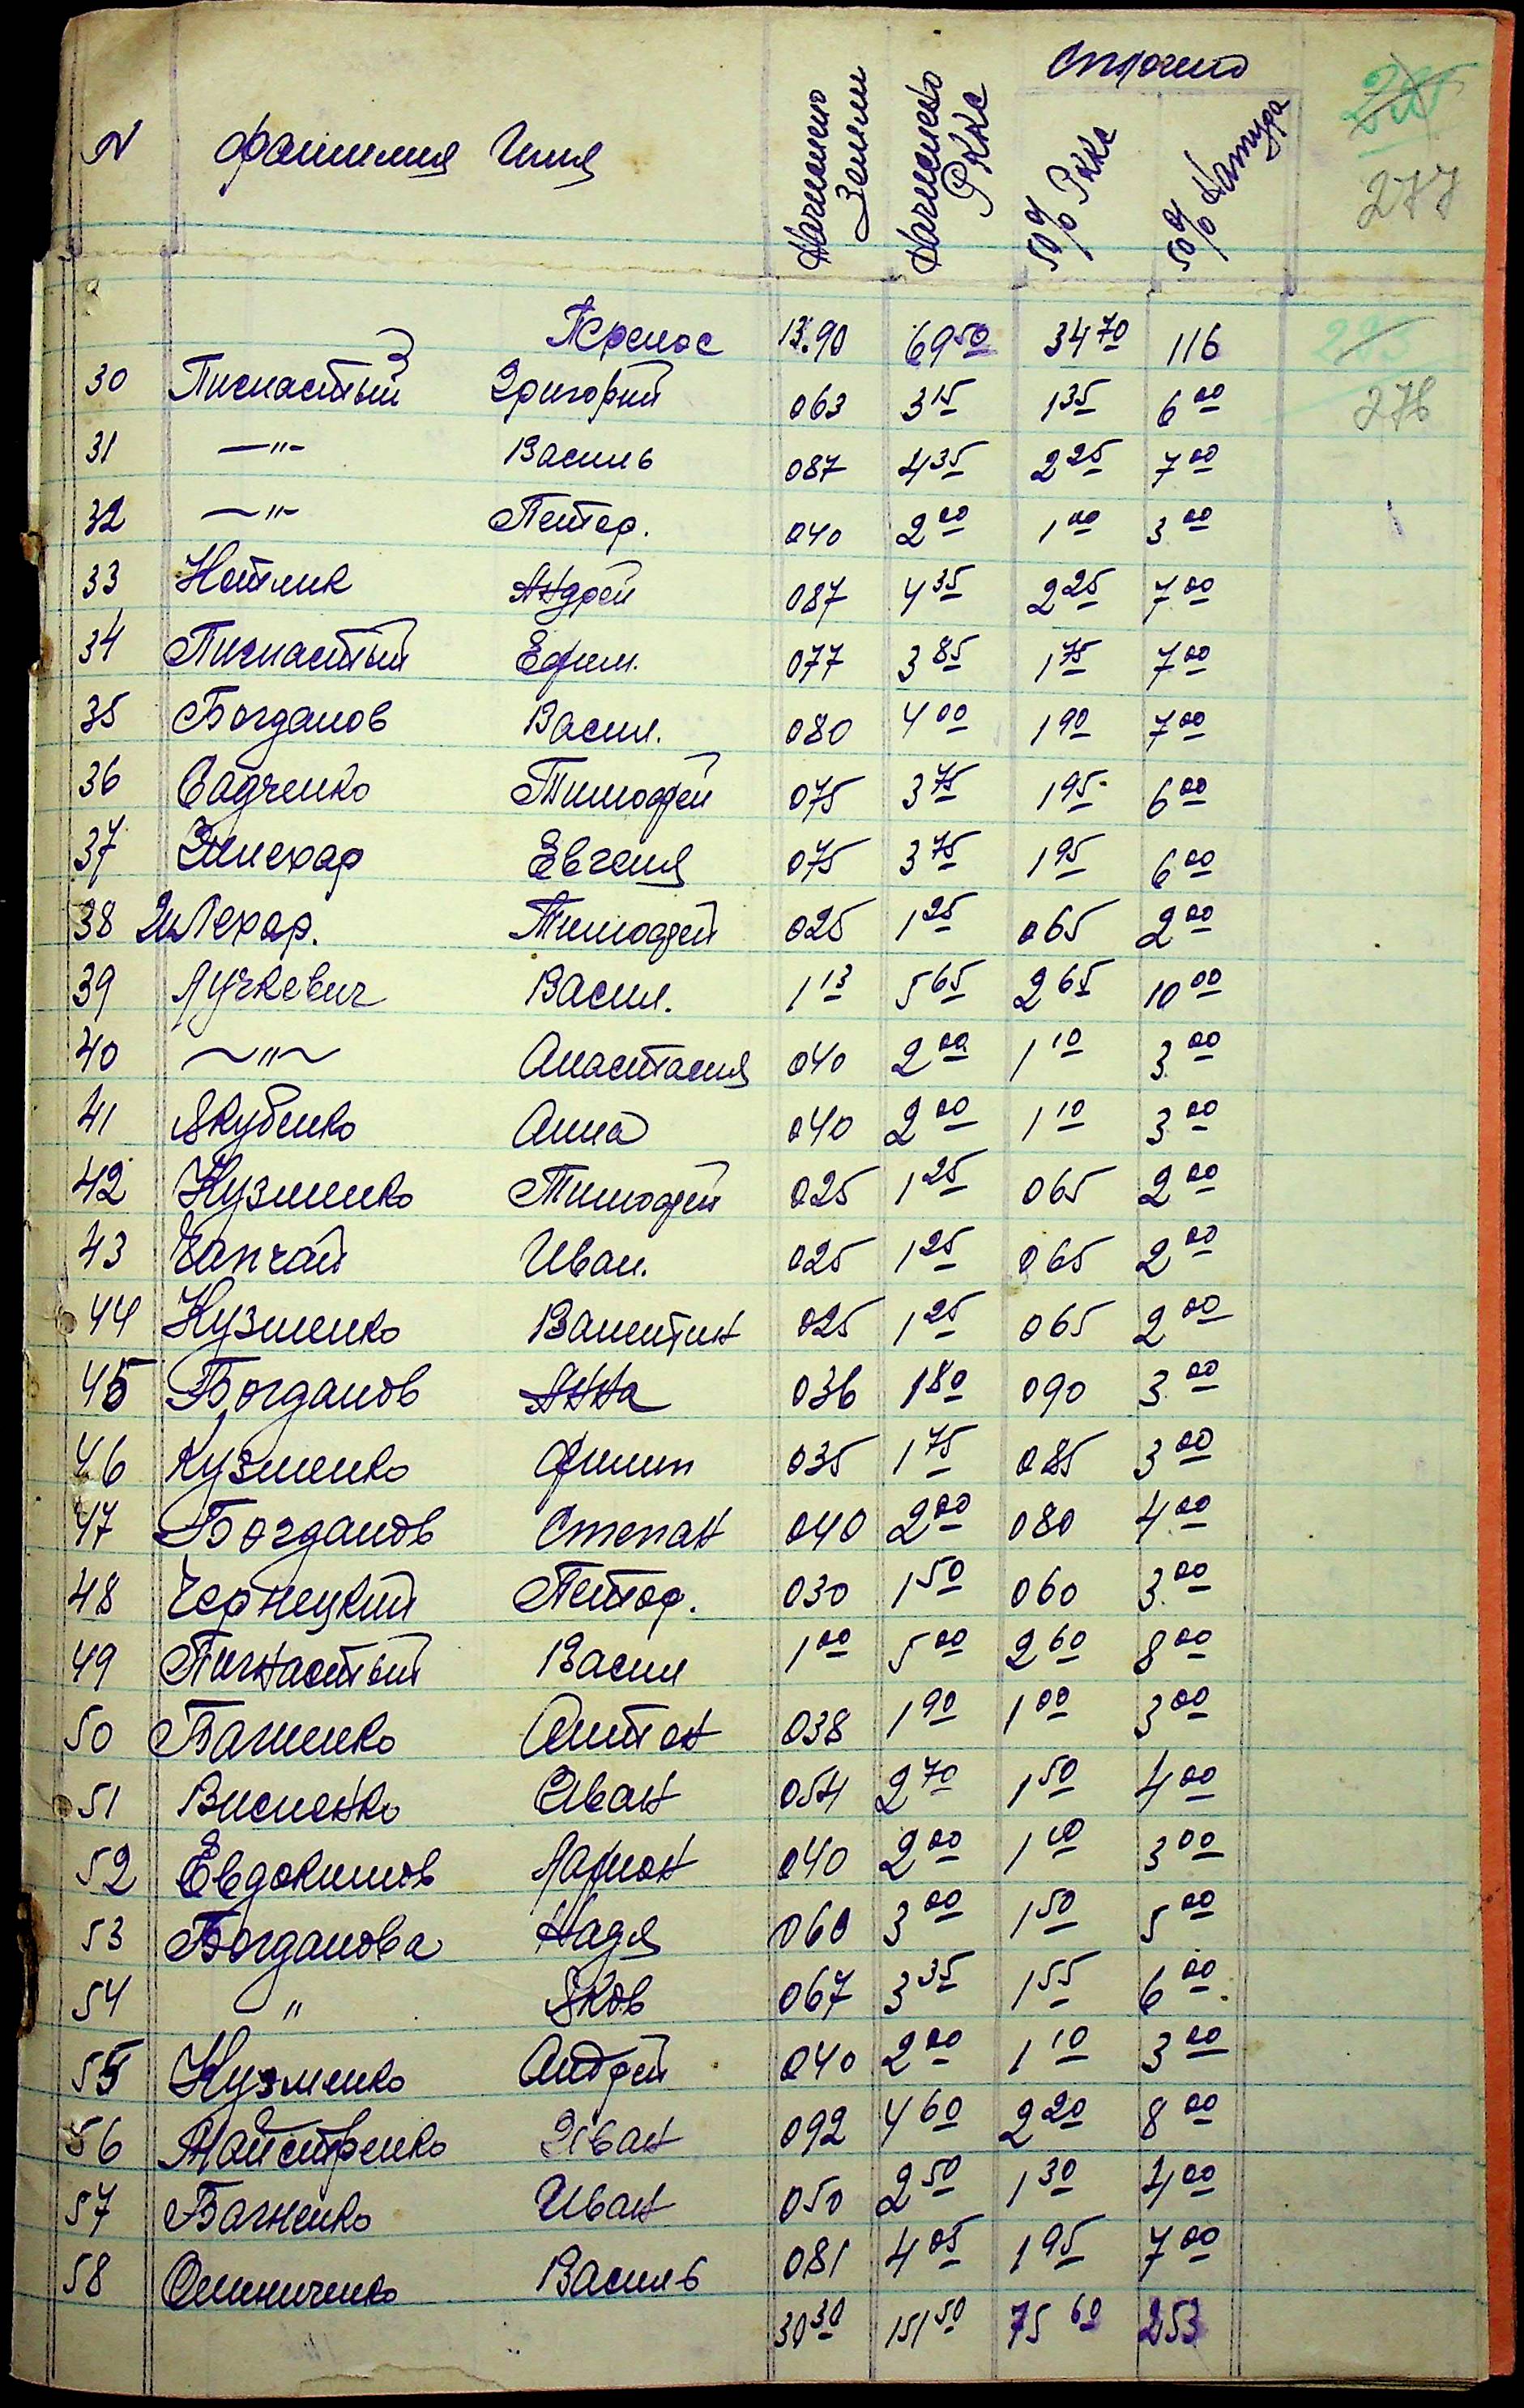 Оплочено
N фамилия Имя Начислено Земли Начислено РККС 50% РККС 50% Натура
285
277
Перенос 13.90 69 50 34 70 116
276
30 Пигнастый Григорий 063 3 15 1 35 6 00
31 —"— Василь 087 4 35 2 25 7 00
32 —"— Петер. 040 2 00 1 00 3 00
33 Котлик Андрей 087 4 35 2 25 7 00
34 Пигнастый Ефим. 077 3 85 1 75 7 00
35 Богданов Васил. 080 4 00 1 90 7 00
36 Садченко Тимофей 075 3 75 1 95 6 00
37 Евгения 075 3 75 1 95 6 00
38 Тимофей 025 1 25 065 2 00
39 Лучкевич Васил. 1 13 5 65 2 65 10 00
40 —"— Анастасия 040 2 00 1 10 3 00
41 Якубенко Анна 040 2 00 1 10 3 00
42 Кузменко Тимофей 025 1 25 065 2 00
43 Чапчай Иван. 025 1 25 065 2 00
44 Кузменко Валентин 025 1 25 065 2 00
45 Богданов Анна 036 1 80 090 3 00
46 Кузменко Филип 035 1 75 085 3 00
47 Богданов Степан 040 2 00 080 4 00
48 Чернецкий Петор. 030 1 50 060 3 00
49 Пигнастый Васил 1 00 5 00 2 60 8 00
50 Багненко Антон 038 1 90 1 00 3 00
51 Висненко Иван 054 2 70 1 50 4 00
52 Евдокимов Ларион 040 2 00 1 10 3 00
53 Богданова Надя 060 3 00 1 50 5 00
54 " Яков 067 3 35 1 55 6 00
55 Кузменко Андрей 040 2 00 1 10 3 00
56 Майстренко Иван 092 4 60 2 20 8 00
57 Багненко Иван 050 2 50 1 30 4 00
58 Олиниченко Василь 081 4 05 1 95 7 00
30 30 151 50 75 60 253